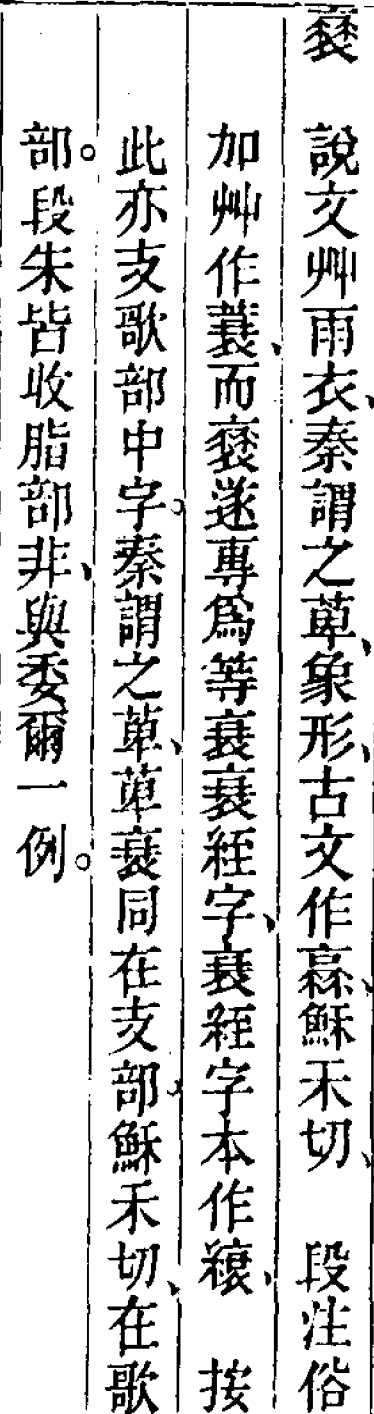 衰　說文艸雨衣、秦謂之萆、象形、古文作𠆁、穌禾切、　段注俗
加艸作蓑、而衰遂專爲等衰衰絰字、衰絰字本作縗、　按
此亦支歌部中字。秦謂之萆、萆衰同在支部、穌禾切、在歌
部。段朱皆收脂部非、與委爾一例。